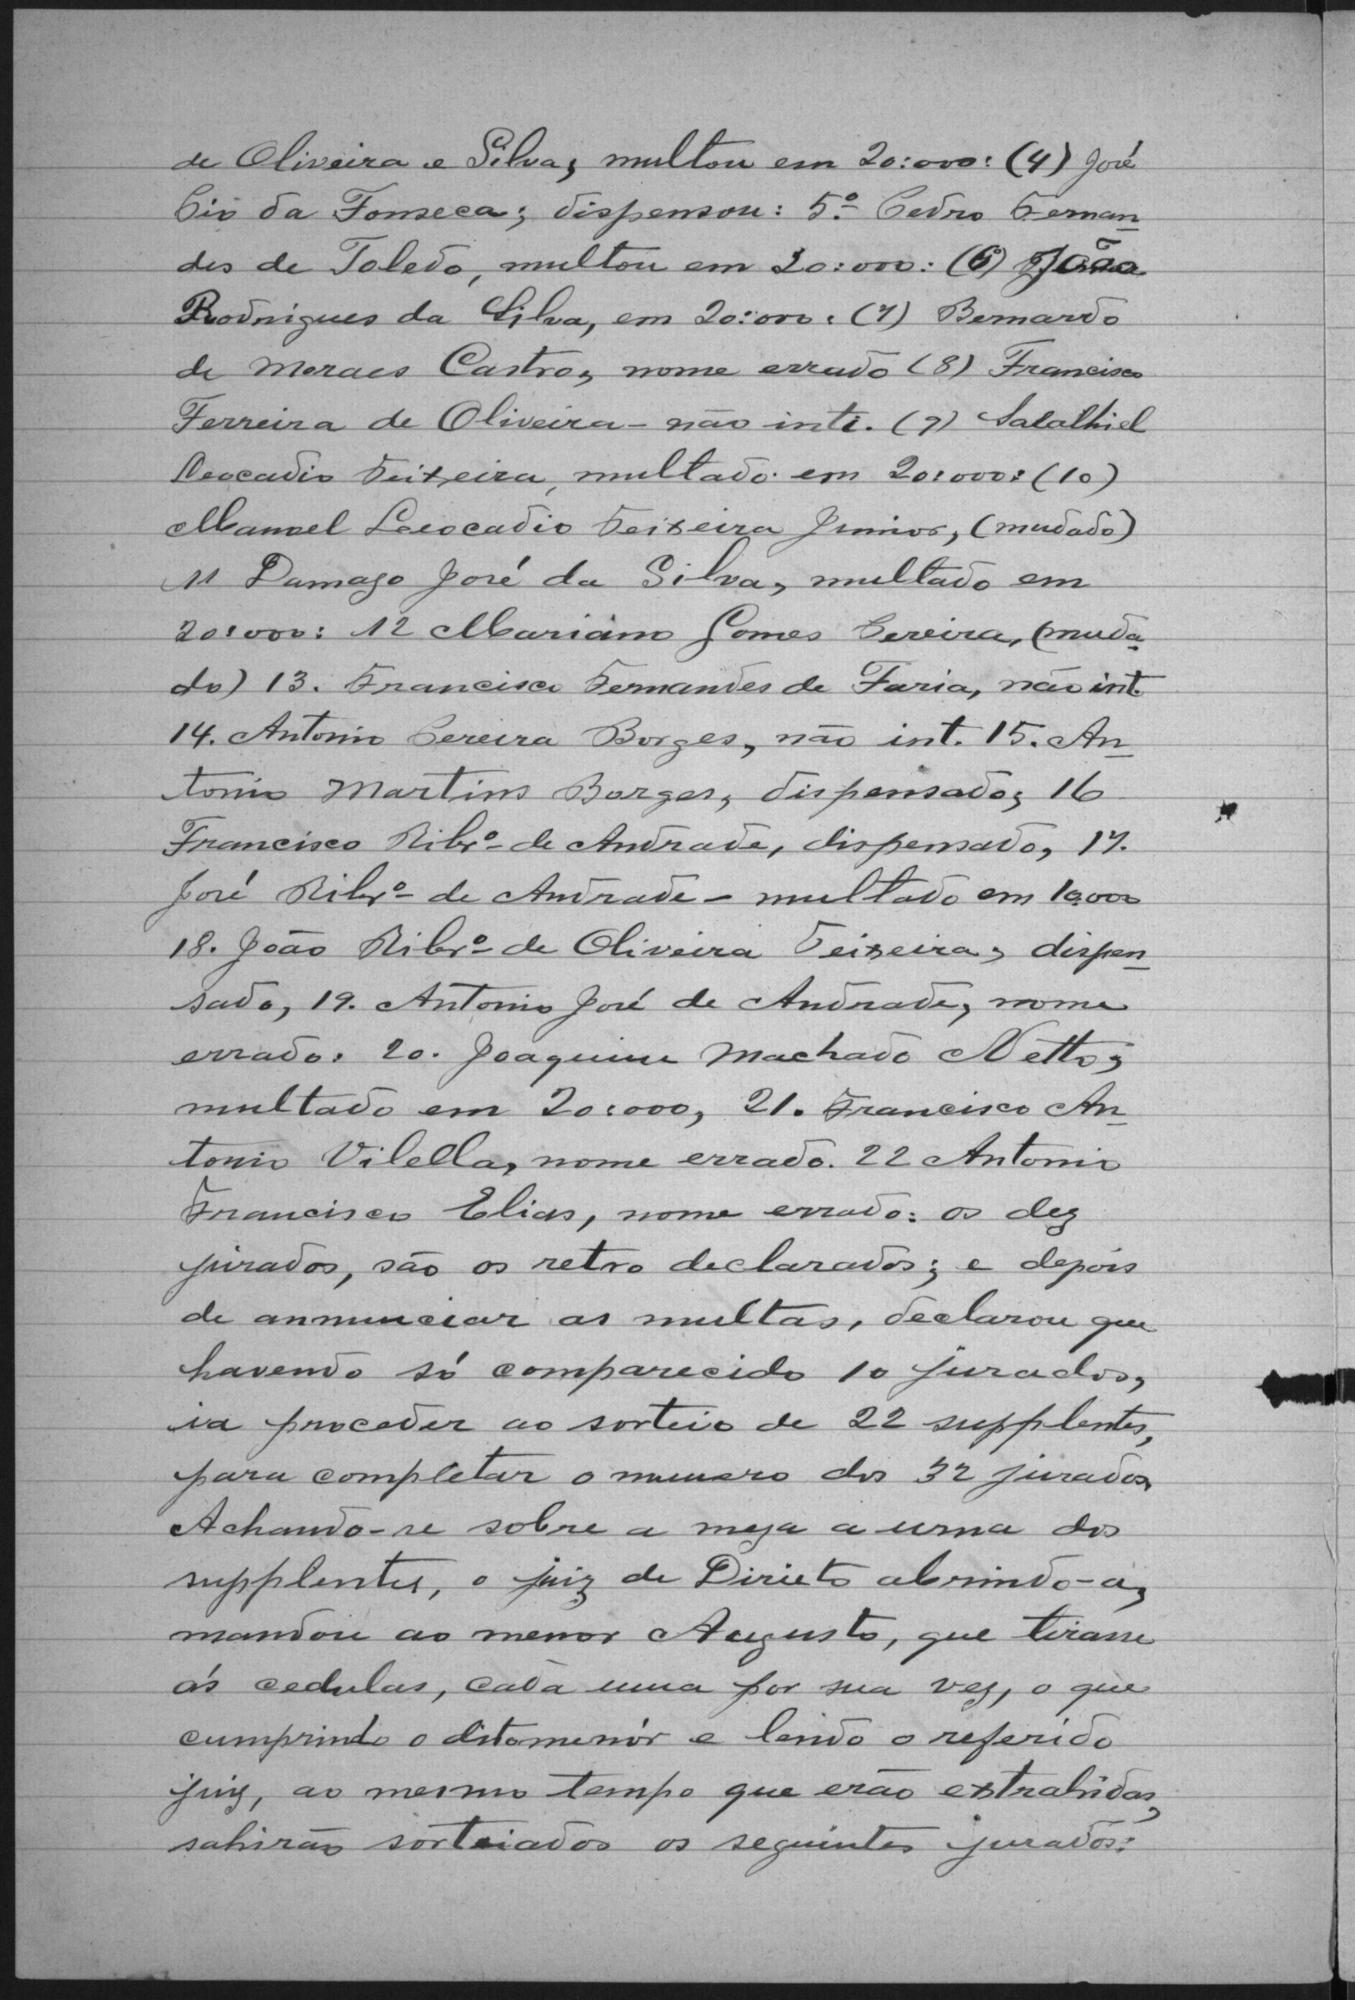 de Oliveira e Silva, multou em 20:000: (4) José
Pio da Fonseca; dispensou: 5º Pedro Fernan
des de Toledo, multou em 20:000: (6) João
Rodrigues da Silva, em 20:000: (7) Bernardo
de Moraes Castro, nome errado (8) Francisco
Ferreira de Oliveira - não inti. (9) Salathiel
Leocadio Teixeira, multado em 20:000: (10)
Manoel Leocadio Teixeira Junior, (mudado)
11 Damazo José da Silva, multado em
20:000: 12 Mariano Gomes Pereira, (muda
do) 13. Francisco Fernandes de Faria, não int.
14. Antonio Pereira Borges, não int. 15. An
tonio Martins Borges, dispensado; 16
Francisco Ribrº de Andrade, dispensado, 17.
José Ribrº de Andrade - multado em 10:000
18. João Ribrº de Oliveira Teixeira, dispen
sado, 19. Antonio José de Andrade, nome
errado. 20. Joaquim Machado Netto;
multado em 20:000, 21. Francisco An
tonio Vilella, nome errado. 22 Antonio
Francisco Elias, nome errado: os dez
jurados, são os retro declarados; e depois
de annunciar as multas, declarou que
havendo só comparecido 10 jurados,
ia proceder ao sorteio de 22 supplentes,
para completar o numero dos 32 jurados.
Achando-se sobre a meza a urna dos
supplentes, o juiz de Direito abrindo-a,
mandou ao menor Augusto, que tirasse
ás cedulas, cada uma por sua vez, o que
cumprindo o dito menór e lendo o referido
juiz, ao mesmo tempo que erão extrahidas,
sahirão sorteiados os seguintes jurados: